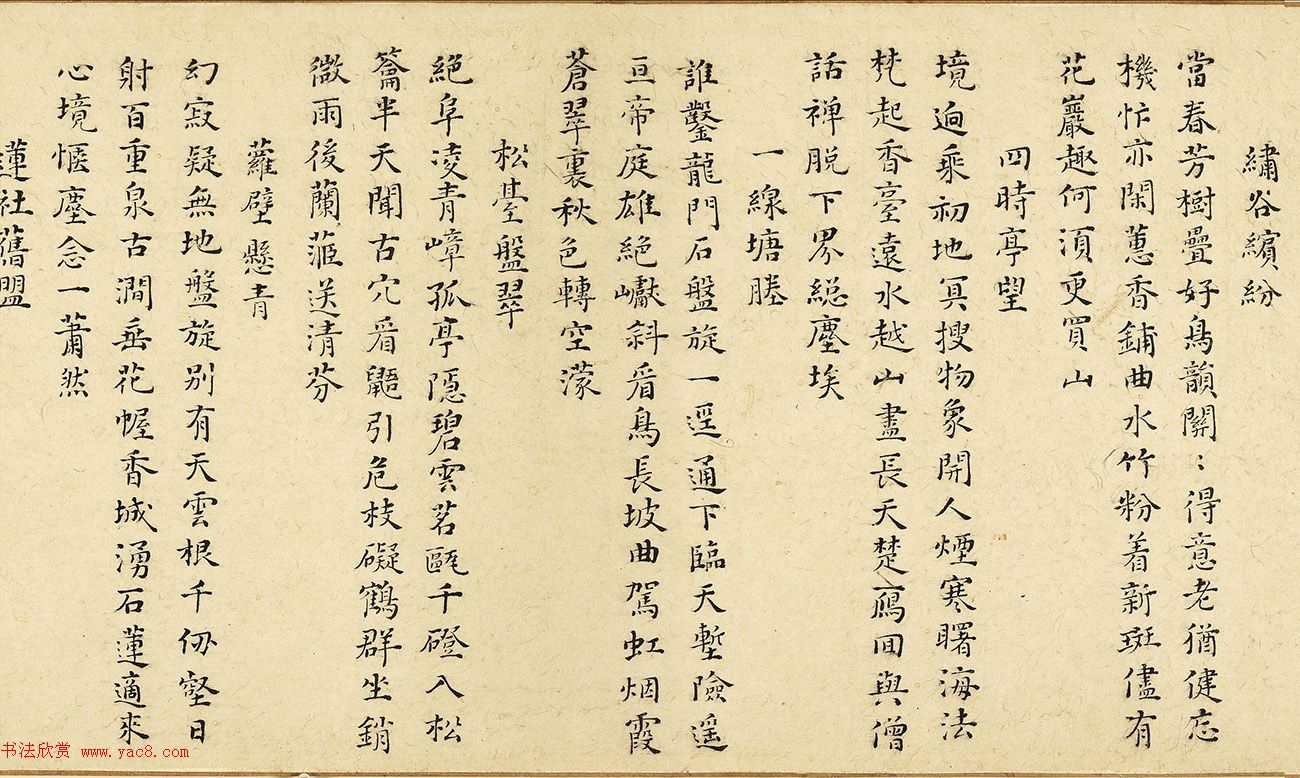 繡谷繽紛
當春芳樹疊好鳥韻關〻得意老猶健忘
機忙亦閑蕙香鋪曲水竹粉着新斑儘有
花巖趣何須更買山
四時亭望
境逈乘初地冥搜物象開人煙寒曙海法
梵起香臺遠水越山盡長天楚鴈回與僧
話禅脱下界緫塵埃
一線塘塍
誰鑿龍門石盤旋一逕通下臨天塹險遥
亘帝庭雄絕巘斜看鳥長坡曲駕虹烟霞
蒼翠裏秋色轉空濛
松臺盤翠
絕阜凌青嶂孤亭隱碧雲茗甌千磴入松
籥半天聞古穴看鼯引危枝礙鶴群坐銷
微雨後蘭茝送清芬
蘿壁懸青
幻寂疑無地盤旋別有天雲根千仞壑日
射百重泉古澗垂花幄香城湧石蓮適來
心境愜塵念一蕭然
蓮社舊盟
书法欣赏 www.yac8.com